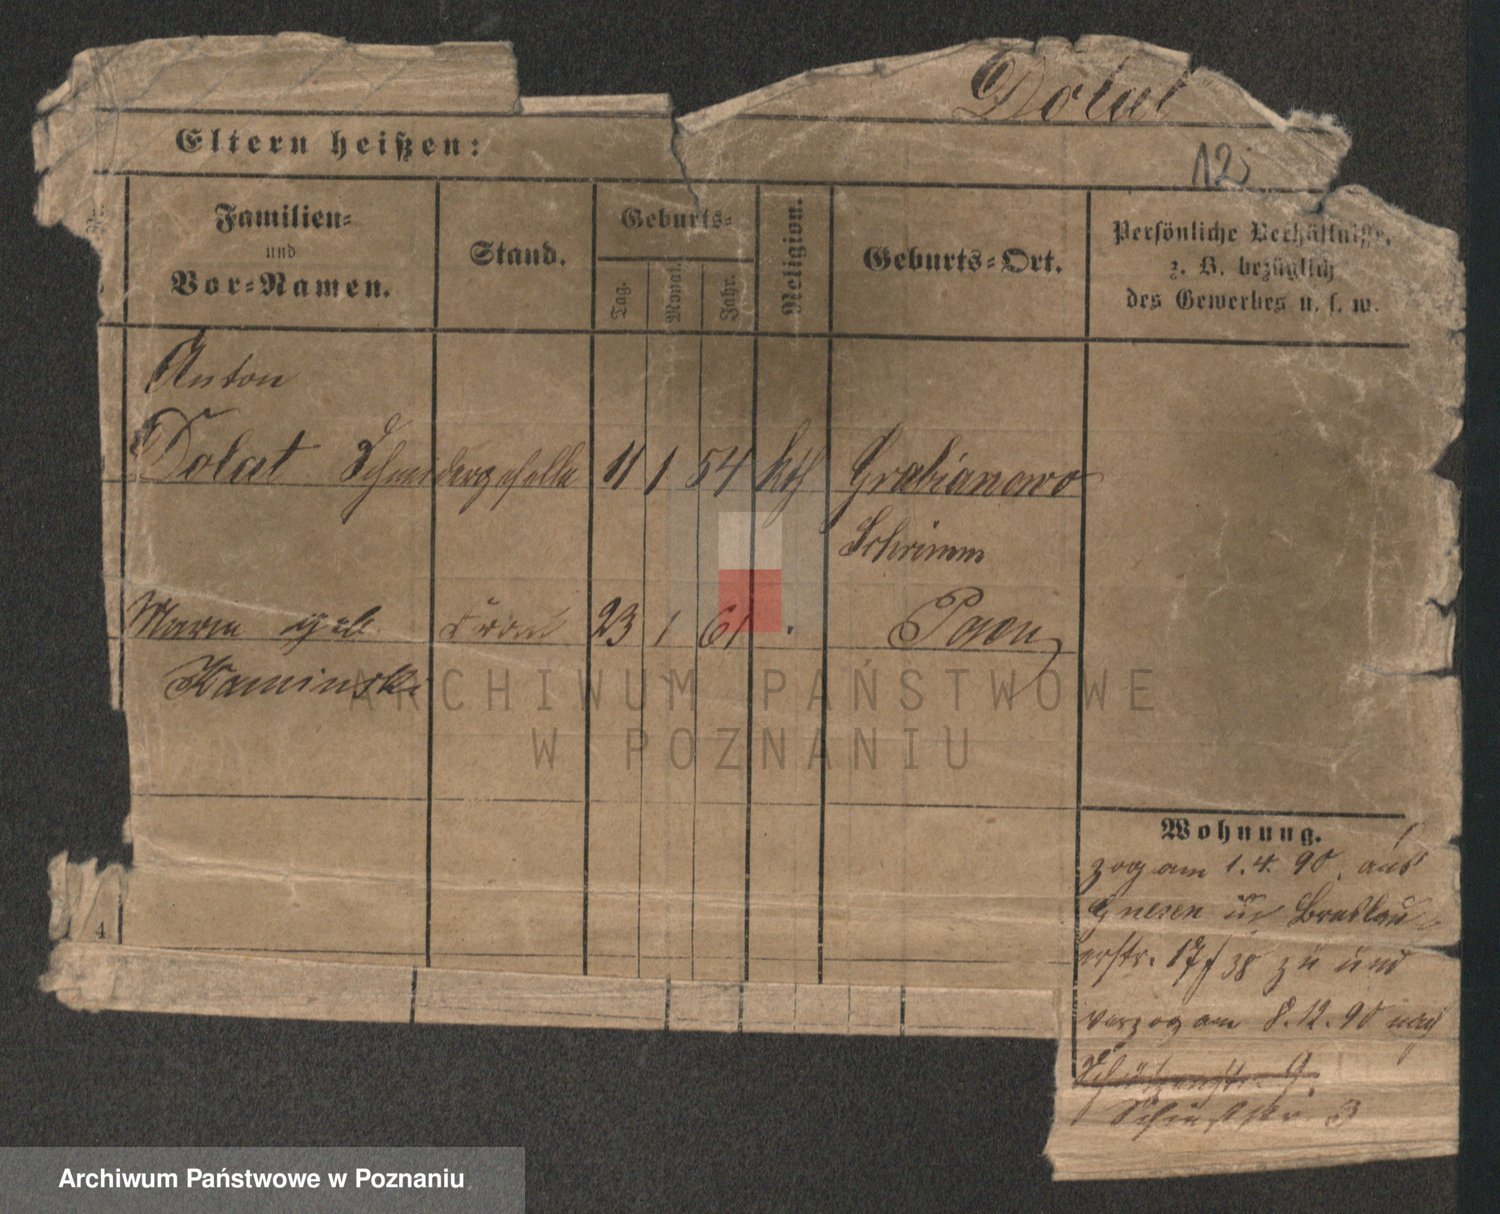 Dolat
Eltern heißen:
12
Familien=
und
Vor=Namen.
Stand.
Geburts=
Tag.
Monat.
Jahr.
Religion.
Geburts=Ort.
Persönliche Verhältnisse,
z. B. bezüglich
des Gewerbes u. s. w.
Anton
Dolat Schneidergeselle 11 1 54 kth Grabianowo
Schrimm
Maria geb. Frau 23 1 61 Posen
Kaminski
ARCHIWUM PAŃSTWOWE
W POZNANIU
Wohnung.
zog am 1.4.90. aus
Gnesen in Breslau
erstr. 17/38 zu und
verzog am 8.12.90 nach
Schützenstr. 9.
3
4
Archiwum Państwowe w Poznaniu